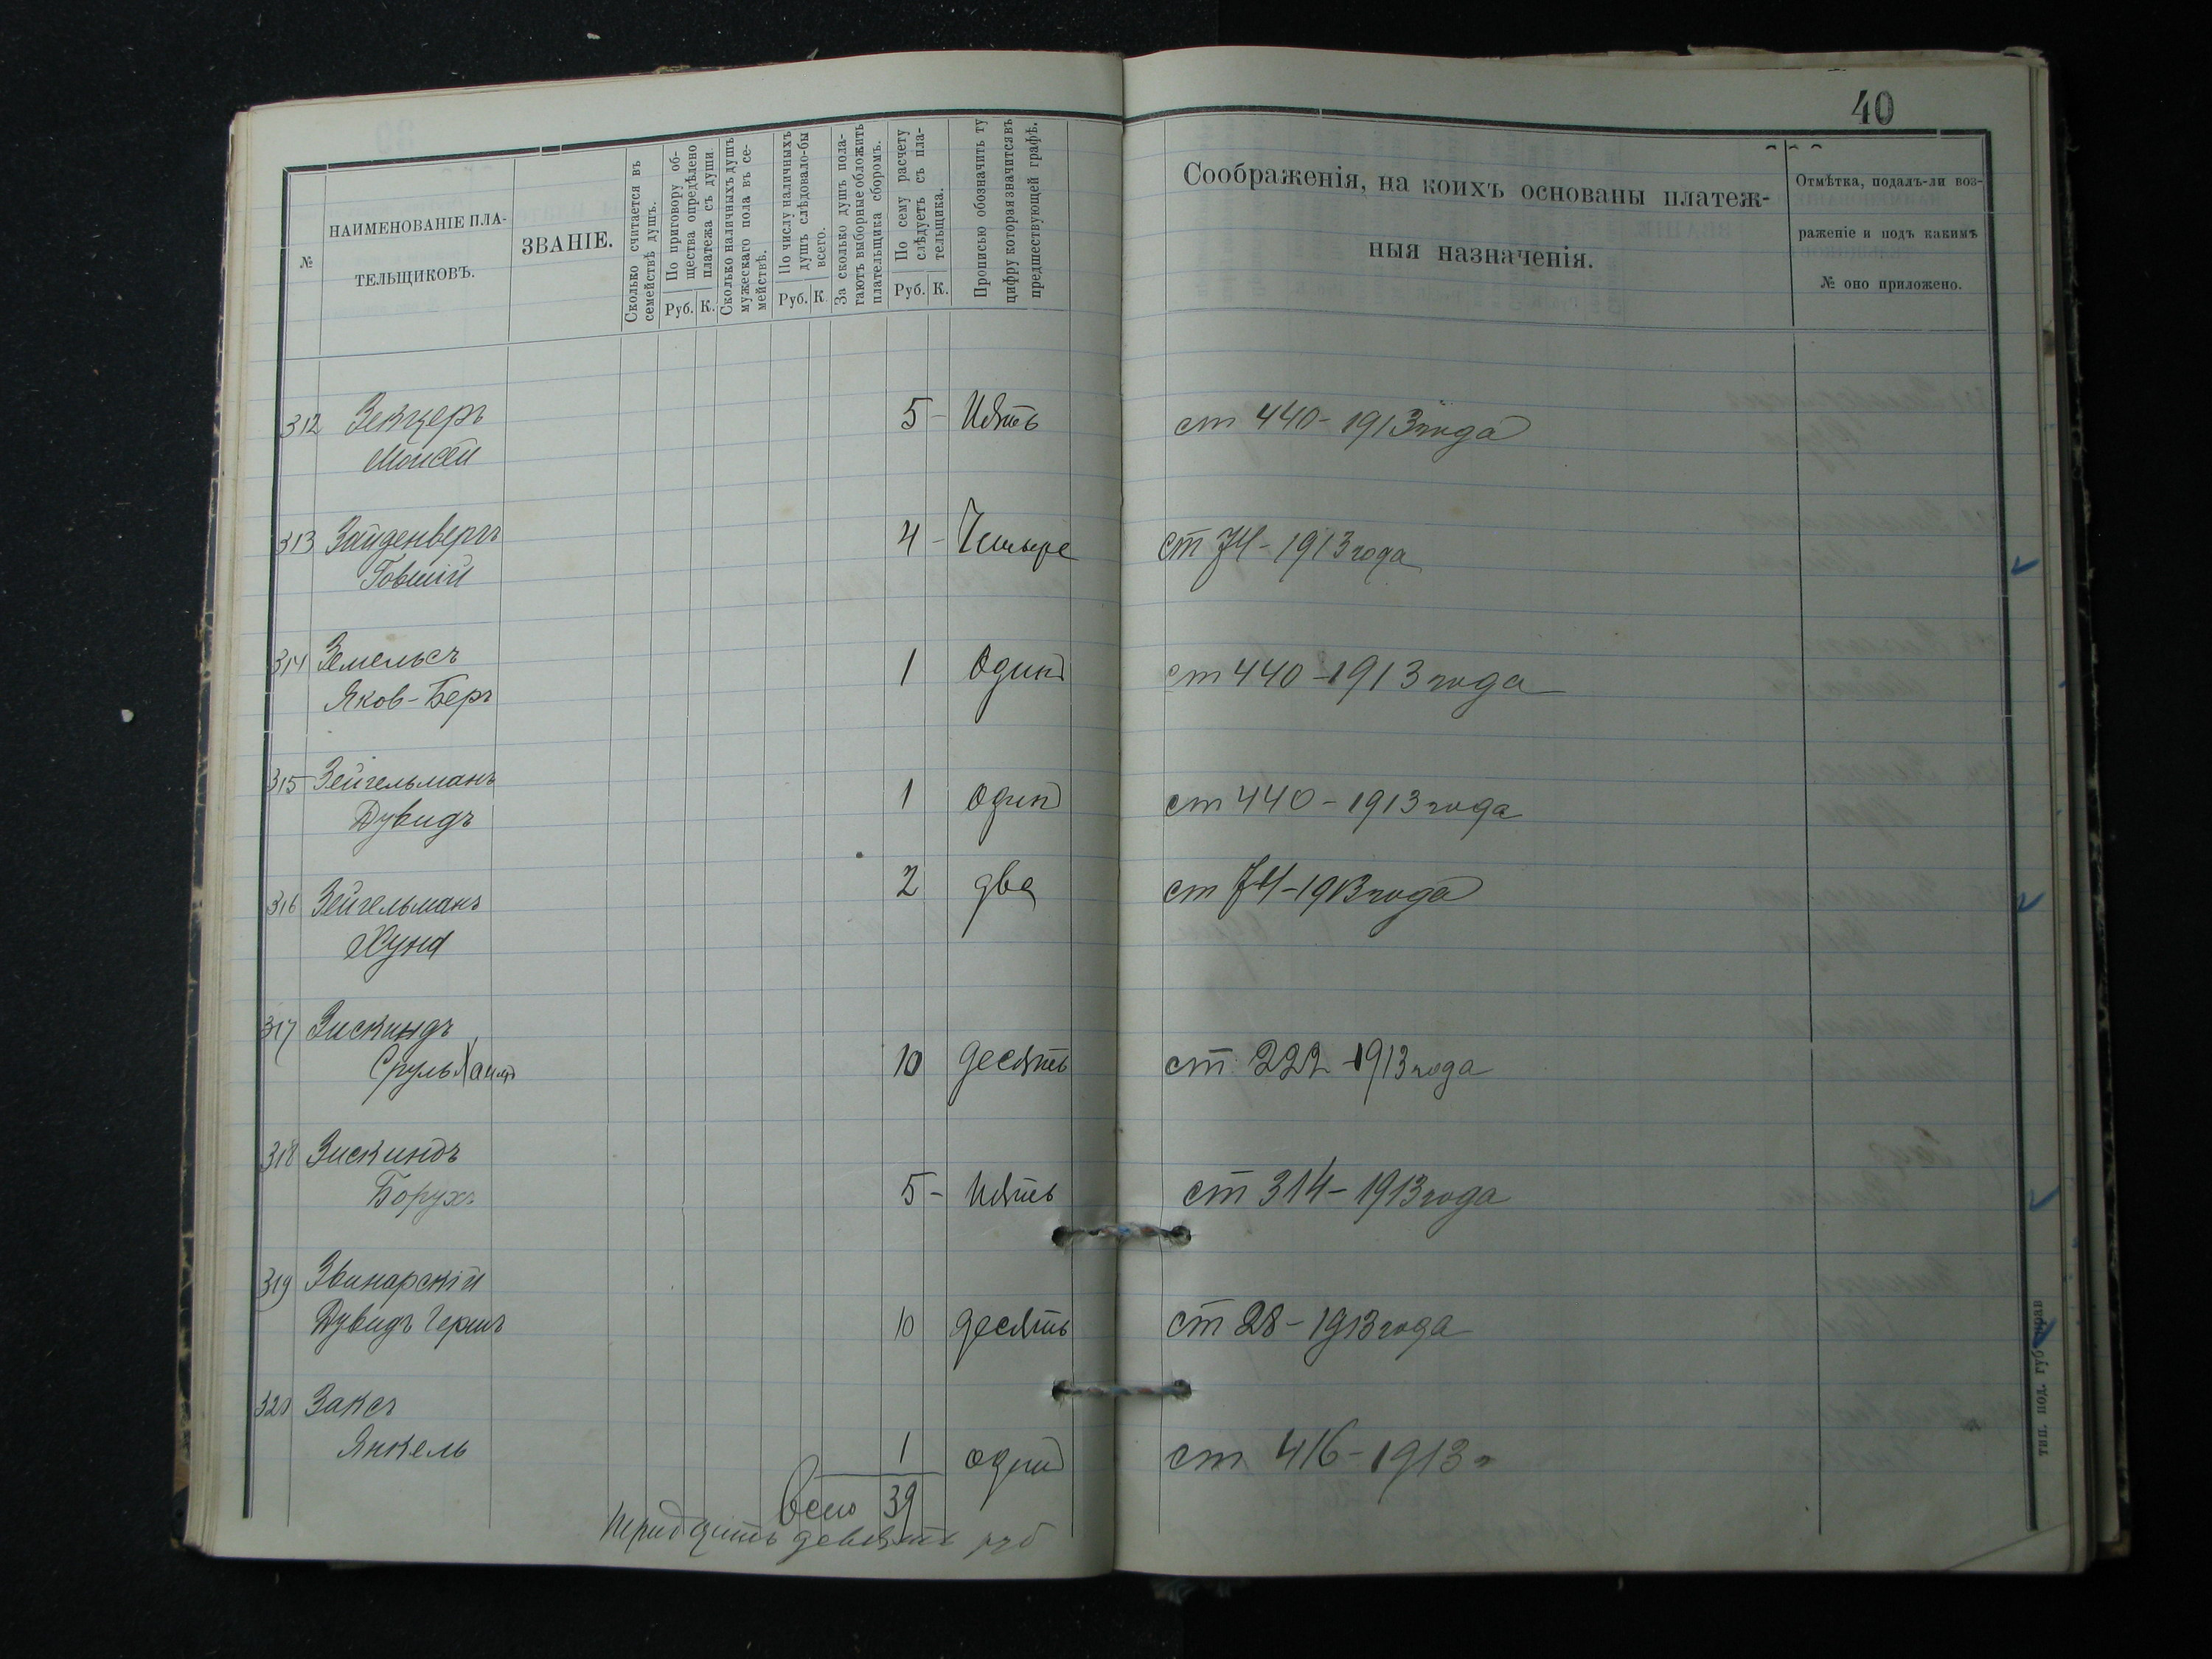 40
№
НАИМЕНОВАНІЕ ПЛА-
ТЕЛЬЩИКОВЪ.
ЗВАНІЕ.
Сколько считается въ
семействѣ душъ.
По приговору об-
щества опредѣлено
платежа съ души
Руб. К.
Сколько наличныхъ душъ
мужескаго пола въ се-
мействѣ.
По числу наличныхъ
душъ слѣдовало-бы
всего.
Руб. К.
За сколько душъ пола-
гаютъ выборные обложить
плательщика сборомъ.
По сему расчету
слѣдуетъ съ пла-
тельщика.
Руб. К.
Прописью обозначить ту
цифру которая значится въ
предшествующей графѣ.
Соображенія, на коихъ основаны платеж-
ныя назначенія.
Отмѣтка, подалъ-ли воз-
раженіе и подъ какимъ
№ оно приложено.
312 Зекцеръ 5 - Пять ст 440 - 1913 года
Моисей
313 Зайденвергъ 4 - Четыре ст 74 - 1913 года
Говшій
314 Земельсъ 1 Один ст 440 - 1913 года
Яков-Беръ
315 Зейгельманъ 1 один ст 440 - 1913 года
Дувидъ
316 Зейгельманъ 2 два ст 74 - 1913 года
Хуна
317 Зискиндъ
Сруль Хаимъ 10 десять ст 222 - 1913 года
318 Зискиндъ
Борухъ 5 - пять ст 314 - 1913 года
319 Звинарскій
Дувидъ Гершъ 10 десять ст 28 - 1913 года
320 Заксъ
Янкель 1 один ст 416 - 1913 г
Всего 39
тридцать девять руб
тип. под. губ. прав